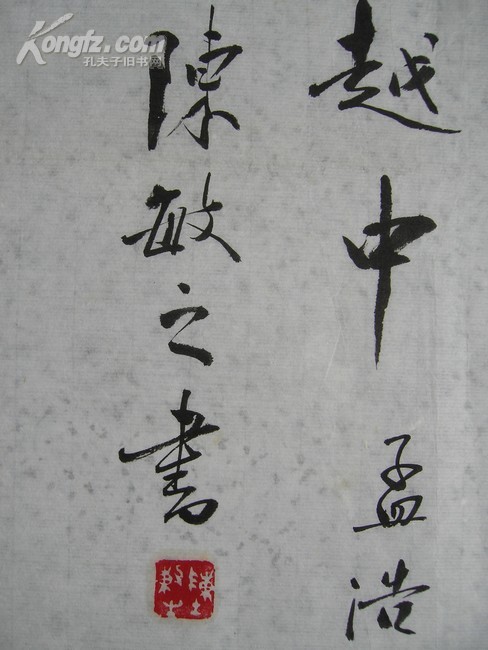 越中孟浩
陳敏之書
Kongfz.com
孔夫子旧书网